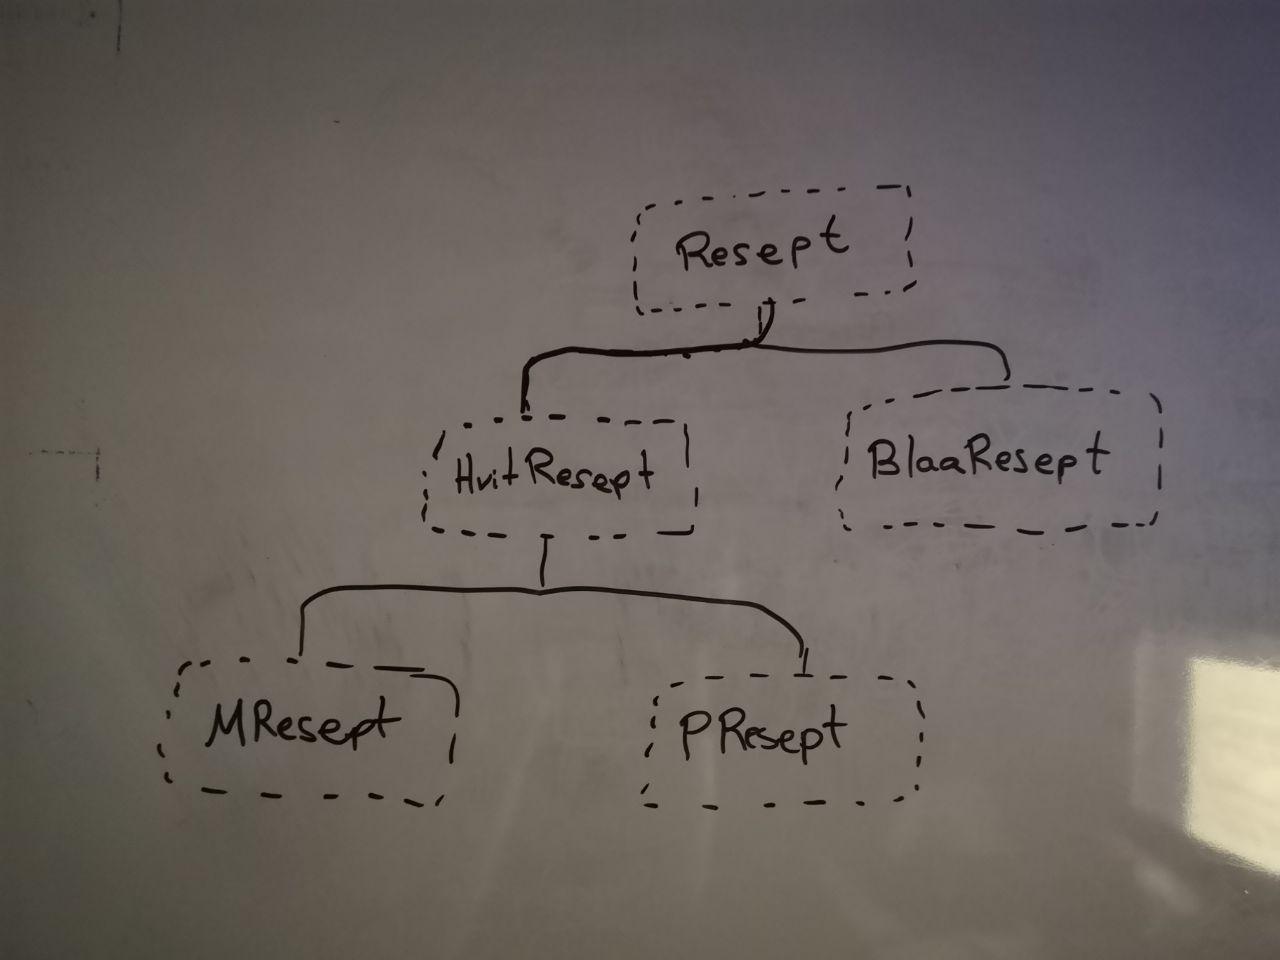 Resept
HvitResept
BlaaResept
MResept
PResept